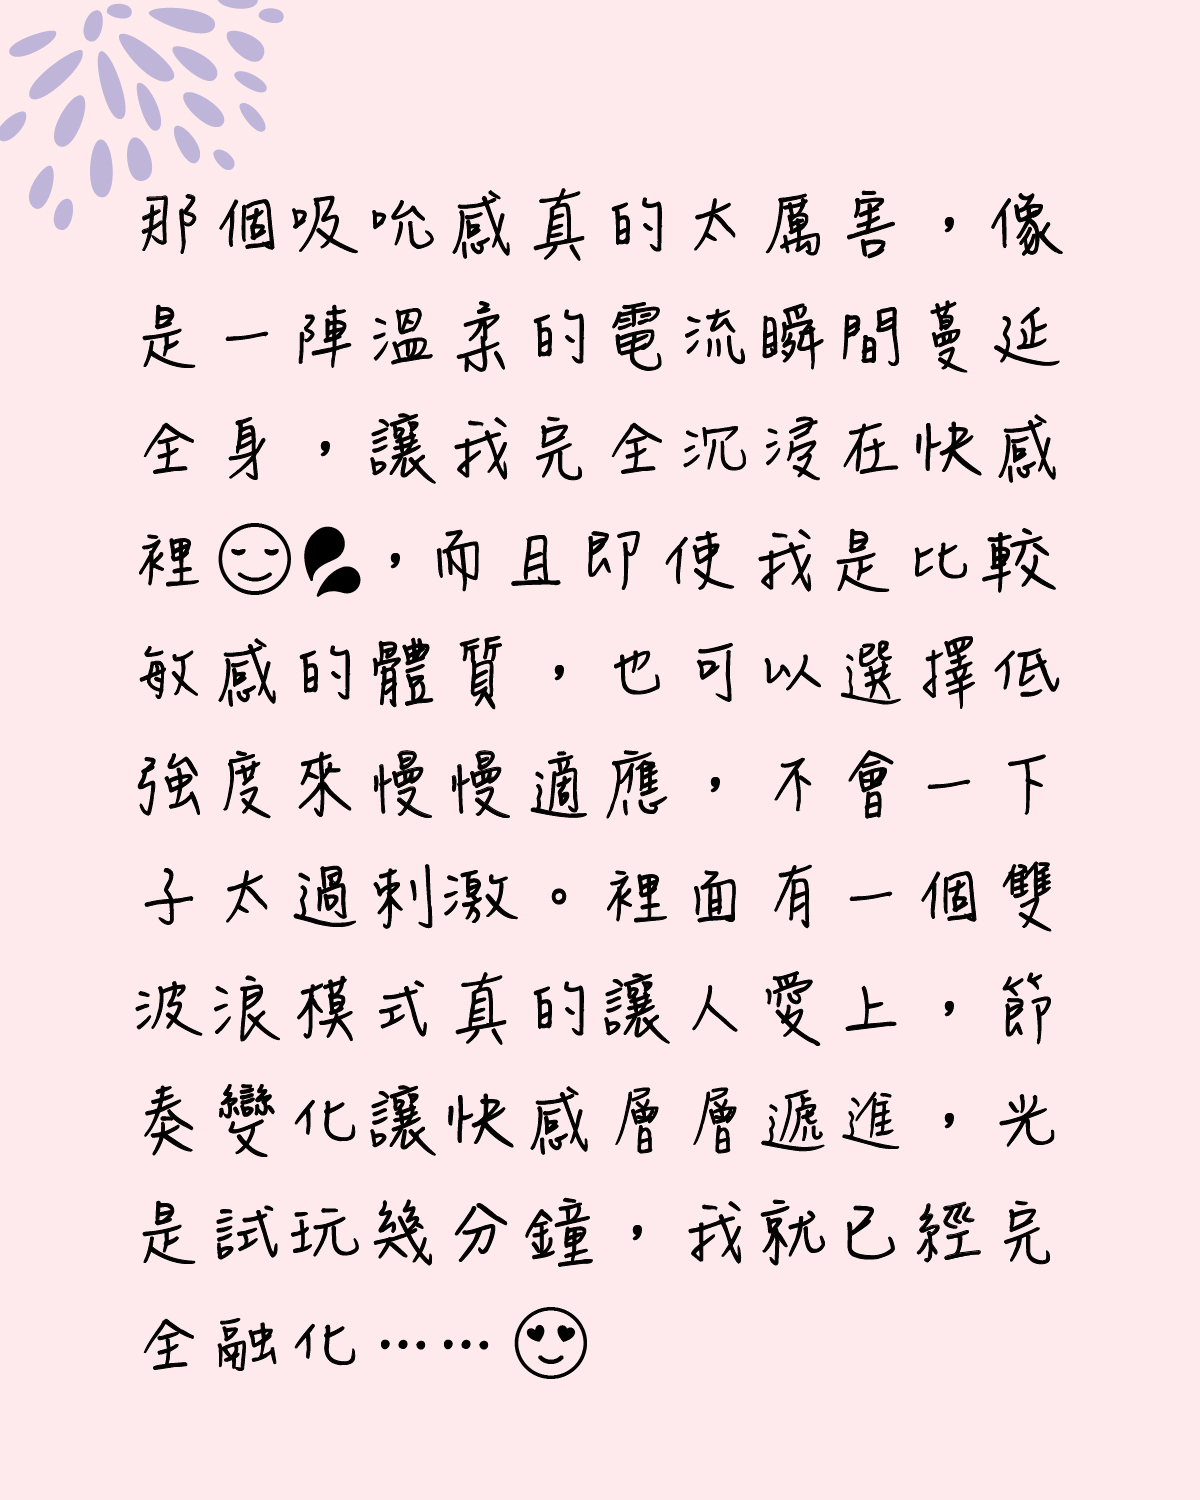 那個吸吮感真的太厲害，像
是一陣溫柔的電流瞬間蔓延
全身，讓我完全沉浸在快感
裡😌💦，而且即使我是比較
敏感的體質，也可以選擇低
強度來慢慢適應，不會一下
子太過刺激。裡面有一個雙
波浪模式真的讓人愛上，節
奏變化讓快感層層遞進，光
是試玩幾分鐘，我就已經完
全融化……😍